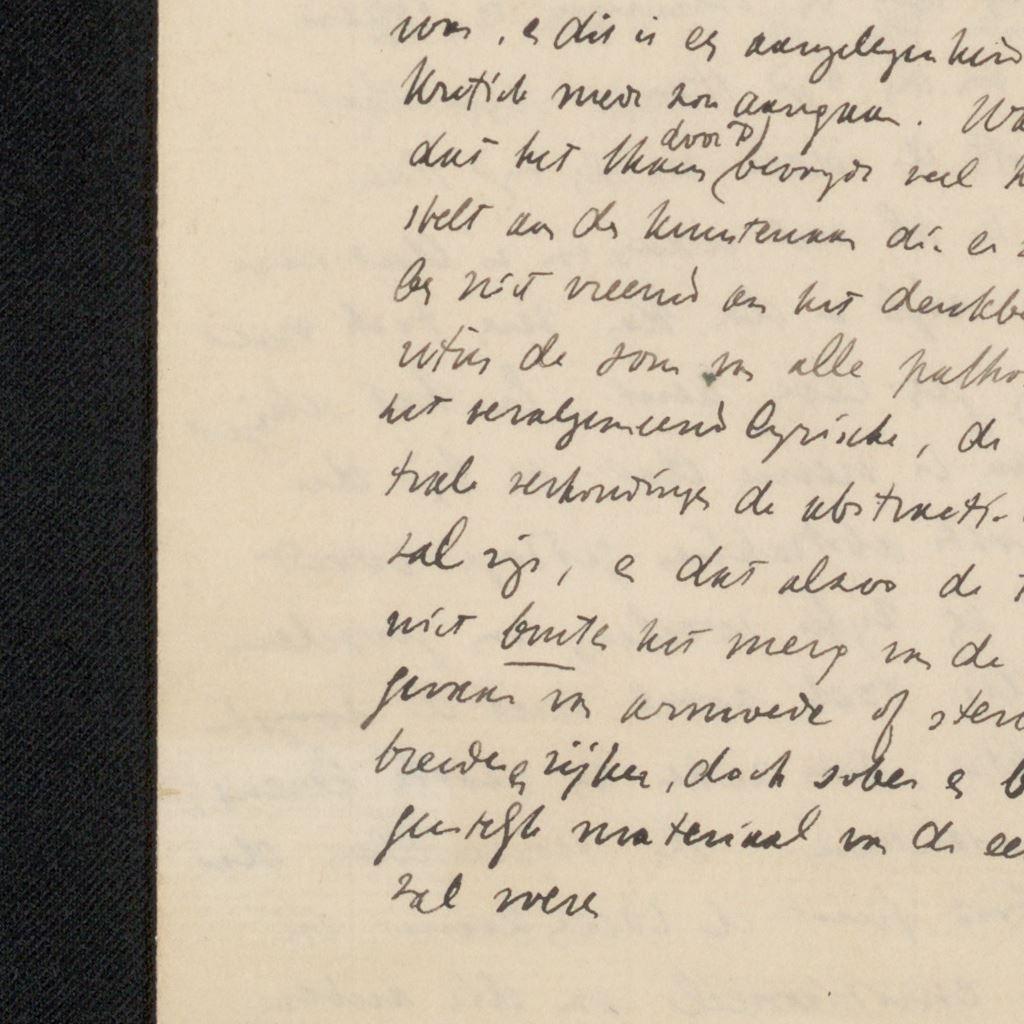 was, en dit is een aangelegenheid
kritiek meer zou aangaan. Wa
dat het thans
door P) bevorgde veel
stelt aan den kunstenaar die er
ben niet vreemd aan het denkbe
de som van alle patho
het veralgemeend lyrische, de
trale verhoudingen de abstractie
zal zijn, en dat alzoo de
niet buiten het merg van de
gevaar van armoede of ster
breeder en rijker, doch sober en b
materiaal van de ee
zal wezen